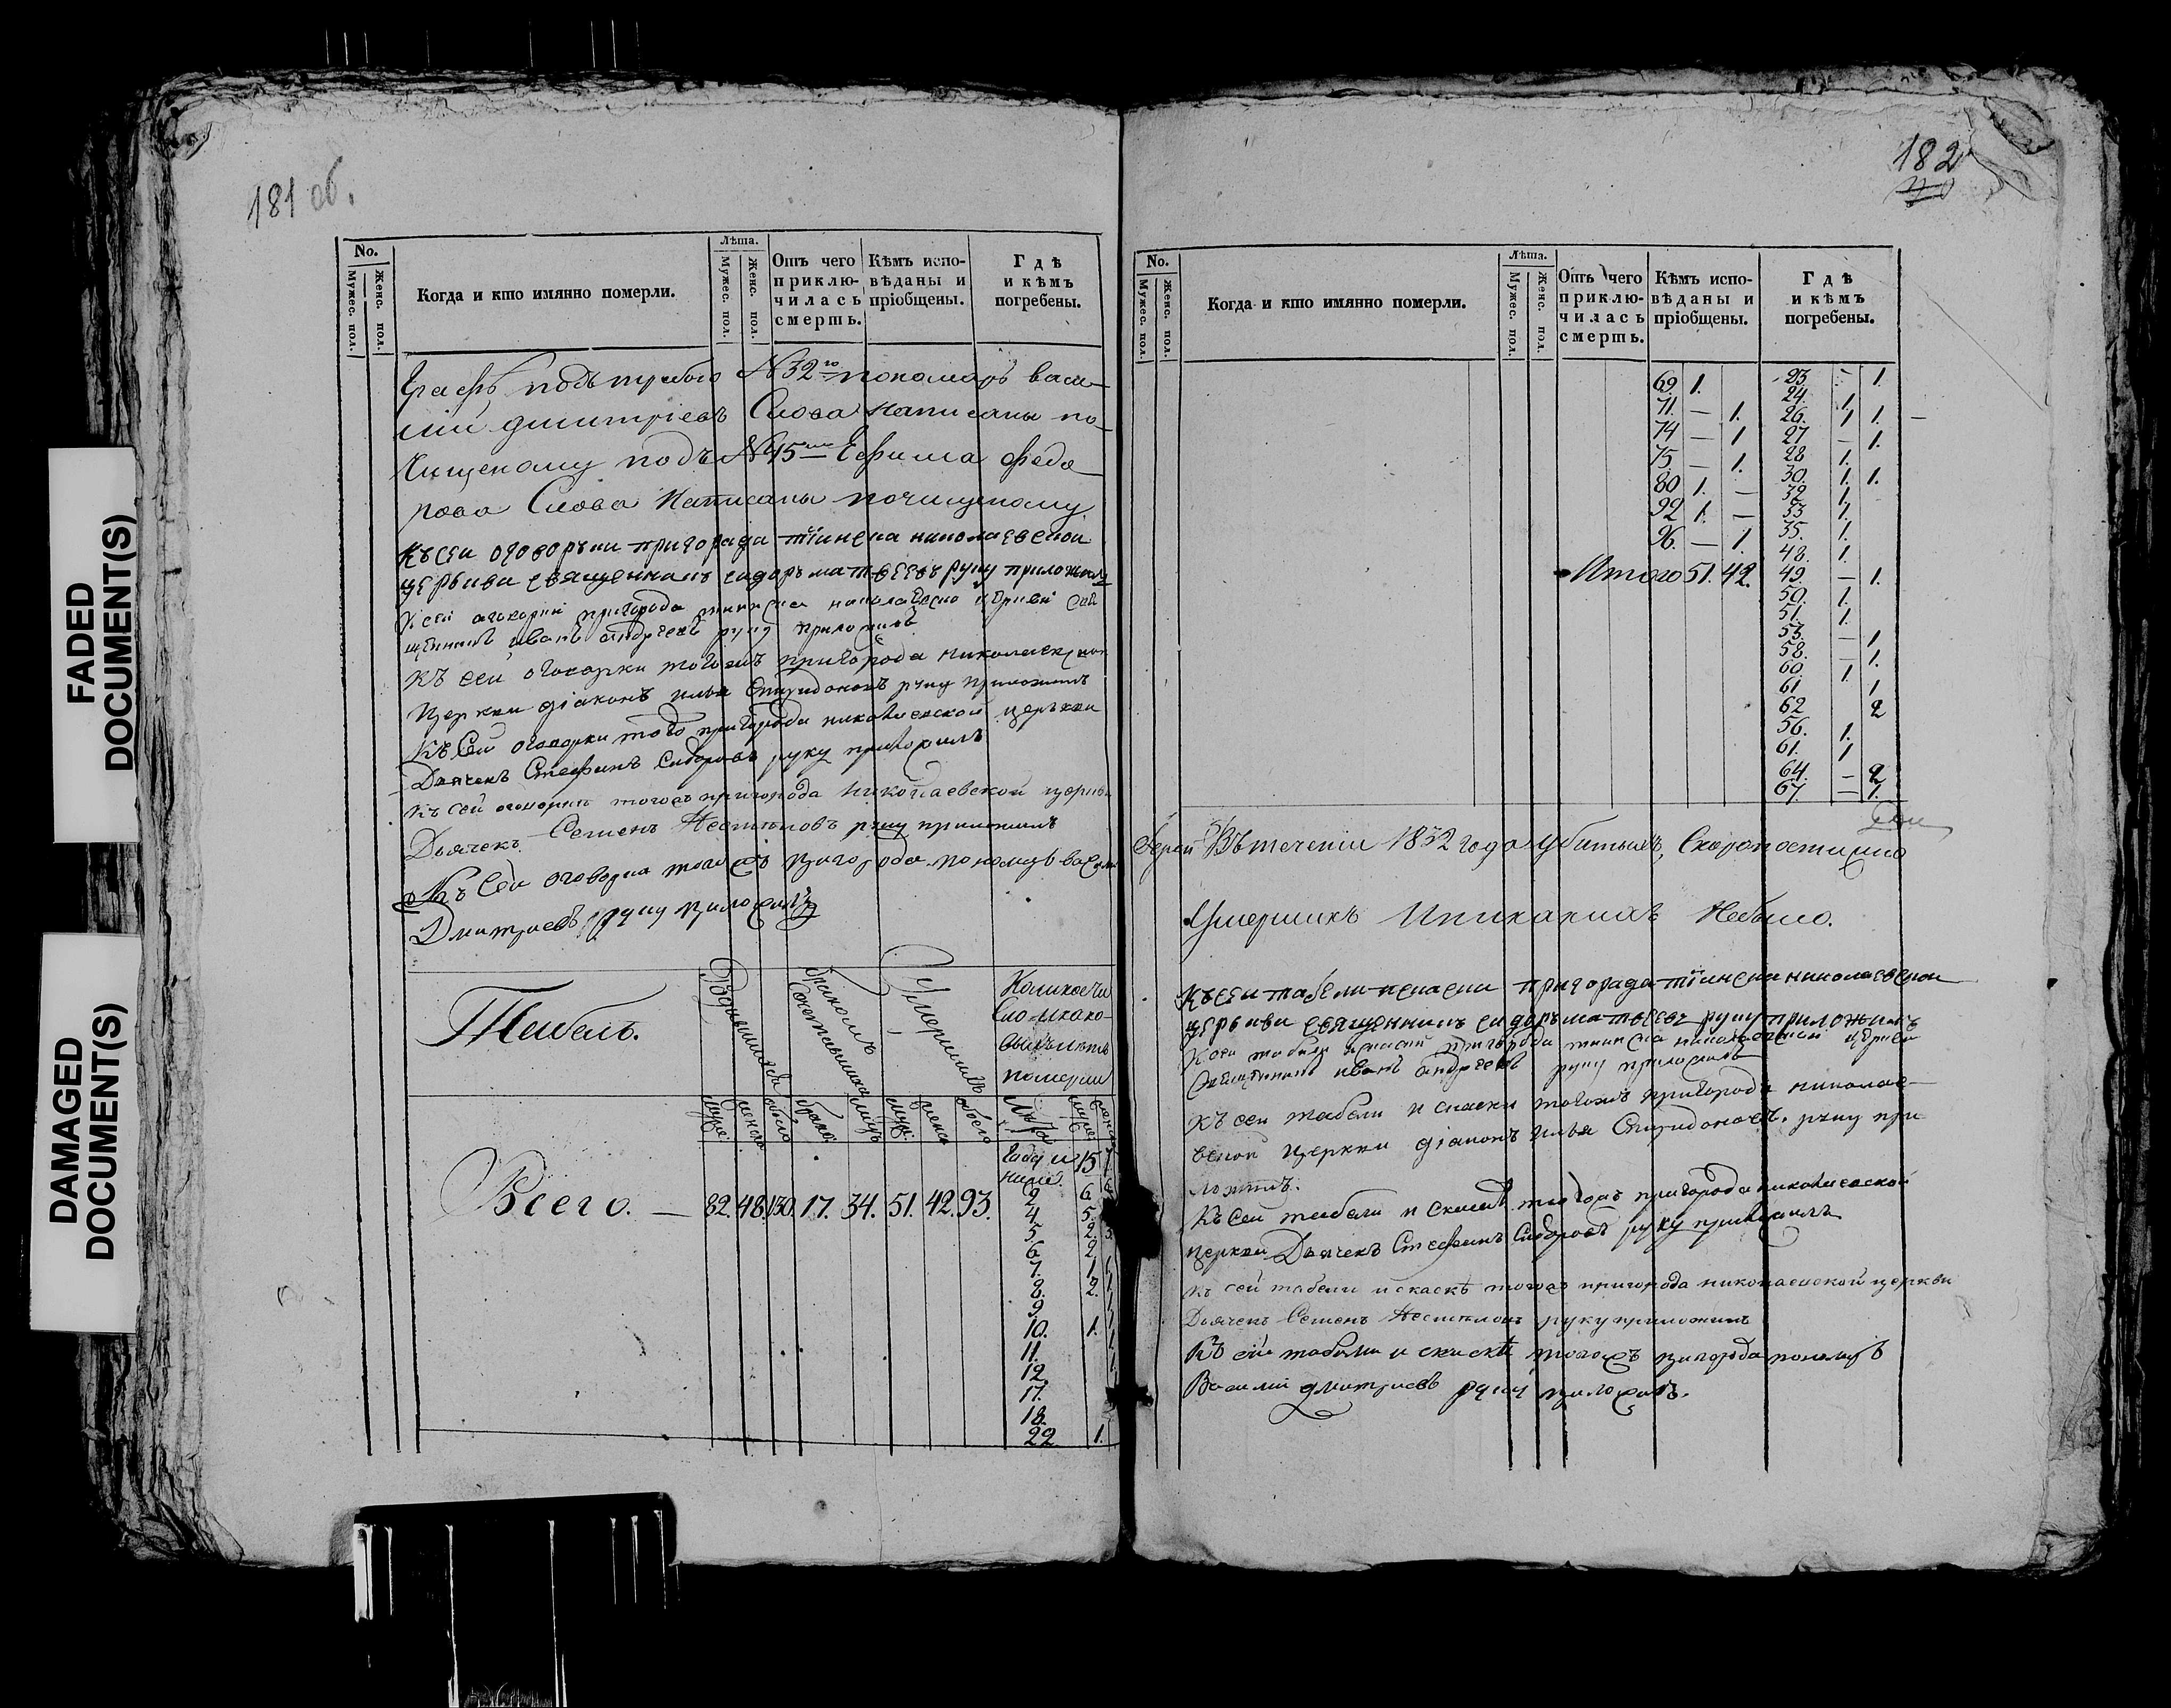 FADED
DOCUMENT(S)
DAMAGED
DOCUMENT(S)
181 об.
No.
Мужес. пол.
Женс. пол.
Когда и кто имянно померли.
Лѣта.
Мужес. пол.
Женс. пол.
Отъ чего приклю-
чилась смерть.
Кѣмъ испо-
вѣданы и
пріобщены.
Гдѣ
и кѣмъ
погребены.
Графѣ подъ № 32го пономарь Васи-
лій Дмитріевъ Слова написаны по-
чищеному подъ № 45мъ Ефима Федо-
рова Слова написаны почищеному
Къ сеи оговорки пригорада тіинска николаевскои
церькви священникъ сидоръ матвеевъ руку приложилъ
К сеі оговорки пригорода тиинска николаевско церкви свя
щенникъ иванъ андреевъ руку приложилъ
Къ сеи оговорки тогожъ пригорода николаевскои
церкви діаконъ илья Спиридоновъ руку приложилъ
Къ Сеи оговорки того пригорода николаевской церькви
Дьячекъ Стефанъ Сидоровъ руку приложилъ
Къ сей оговорки тогожъ пригорода николаевской церкви
Дьячекъ Семенъ руку приложилъ
Къ Сеи оговорки тогожъ пригорода пономарь васили
Дмитриевъ руку приложилъ
Табель.
Родившихся
бракомъ
Сочетавшихся
Умершихъ
Коликое чи
сло и како-
выхъ лѣтъ
померли
муже.
женска
обоего
браков
лицъ
муж:
женск
обоего
Лѣта
муже
женск
Всего. — 82. 48. 130. 17. 34. 51. 42. 93.
Году и 15
ниже
2 6
4 5.
5. 2.
6. 2
7. 1
8. 2.
9
10. 1.
11.
12.
17.
18.
22 1.
182
No.
Мужес. пол.
Женс. пол.
Когда и кто имянно померли.
Лѣта.
Мужес. пол.
Женс. пол.
Отъ чего приклю-
чилась смерть.
Кѣмъ испо-
вѣданы и
пріобщены.
Гдѣ
и кѣмъ
погребены.
69. 1.
71. — 1.
74 — 1
75. — 1.
80 1. —
92 1. —
96. — 1.
Итого 51. 42
23 — 1.
24. 1.
26. 1 1.
27 — 1.
28 1.
30. 1. 1.
32 1.
33 1.
35. 1.
48. 1.
49. — 1.
50. 1.
51. 1.
53. — 1
58. — 1.
60. 1.
61 1
62 2
56. 1.
61. 1
64. — 2
67. — 1.
Въ теченіи 1832 года убитыхъ, Скоропостижно
Умершихъ никакихъ Небыло.
Къ сеи табели искаски пригорада тіинска николаевскои
церькви священникъ сидоръ матвеевъ руку приложилъ
К сеи табели искаски пригорода тиинска николаевскои церкви
Священникъ иванъ андреевъ руку приложилъ
Къ сеи табели и скаски тогожъ пригорода николае-
вскои церкви діаконъ илья Спиридоновъ. руку при-
ложилъ.
Къ Сеи табели и скаскѣ тогожъ пригорода николаевской
церкви Дьячекъ Стефанъ Сидоровъ руку приложилъ
Къ сей табели и скаскѣ тогожъ пригорода николаевской церкви
Дьячекъ Семенъ руку приложилъ
Къ сеи табели и скаскѣ тогожъ пригорода пономарь
Василий дмитриевъ руку приложилъ.